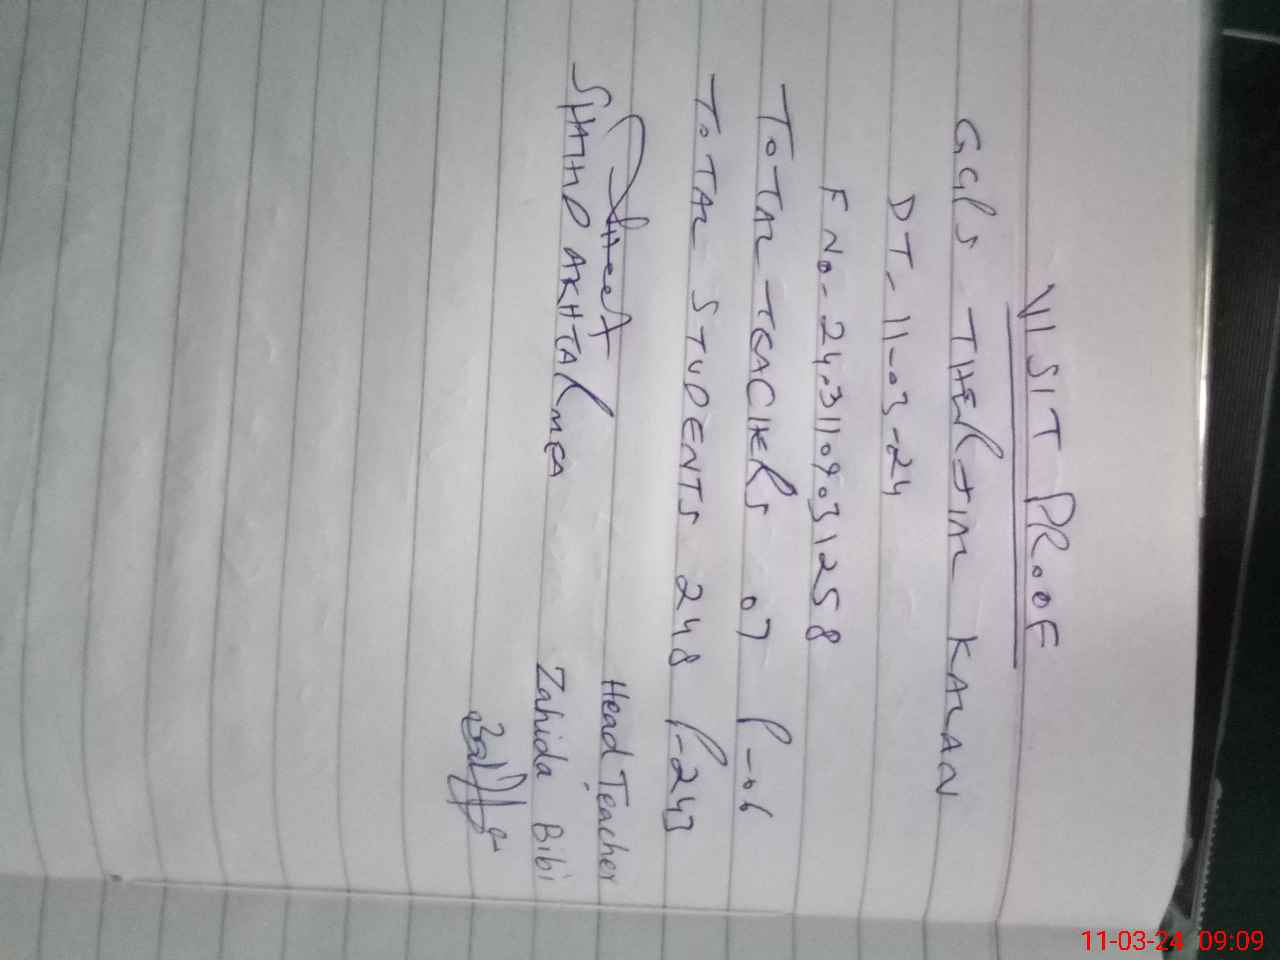 VISIT PROOF
GGPS THERJIAL KALAN
DT- 11-03-24
F No- 24.31109.031258
TOTAL TEACHERS 07 P-06
TOTAL STUDENTS 248 P-243
Head Teacher
SHAHID AKHTAR MEA
Zahida Bibi
11-03-24 09:09